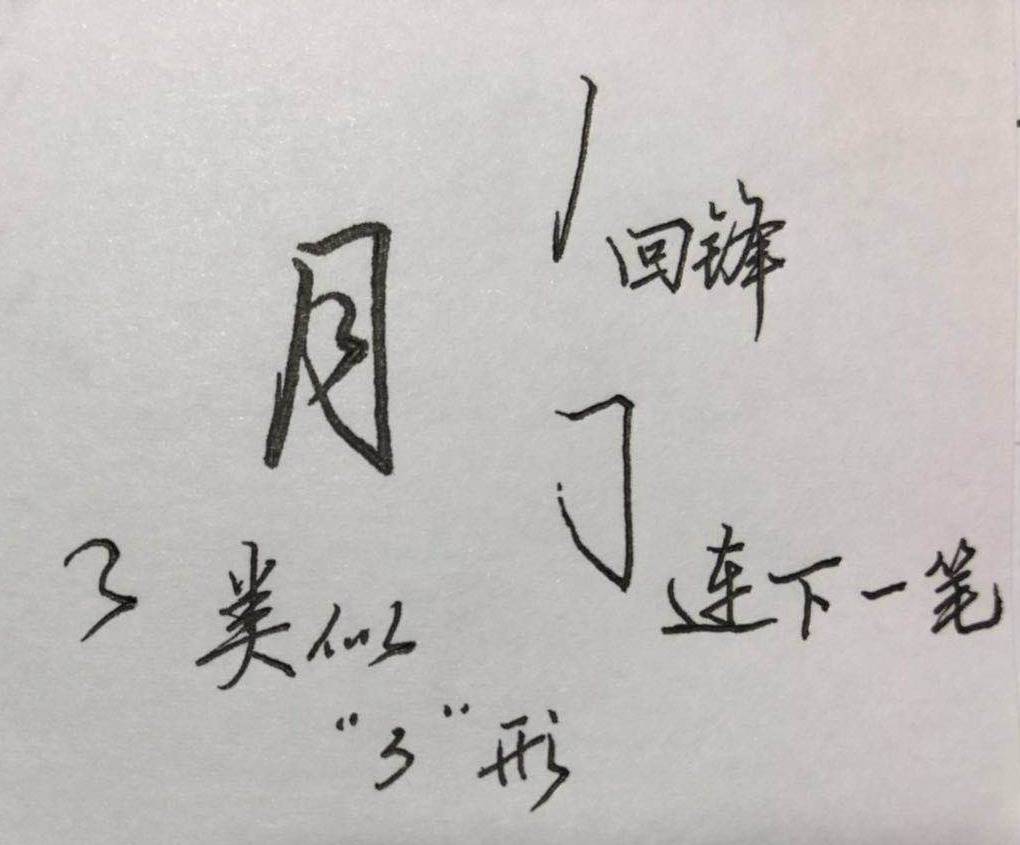 回锋
月
连下一笔
类似
“3”形